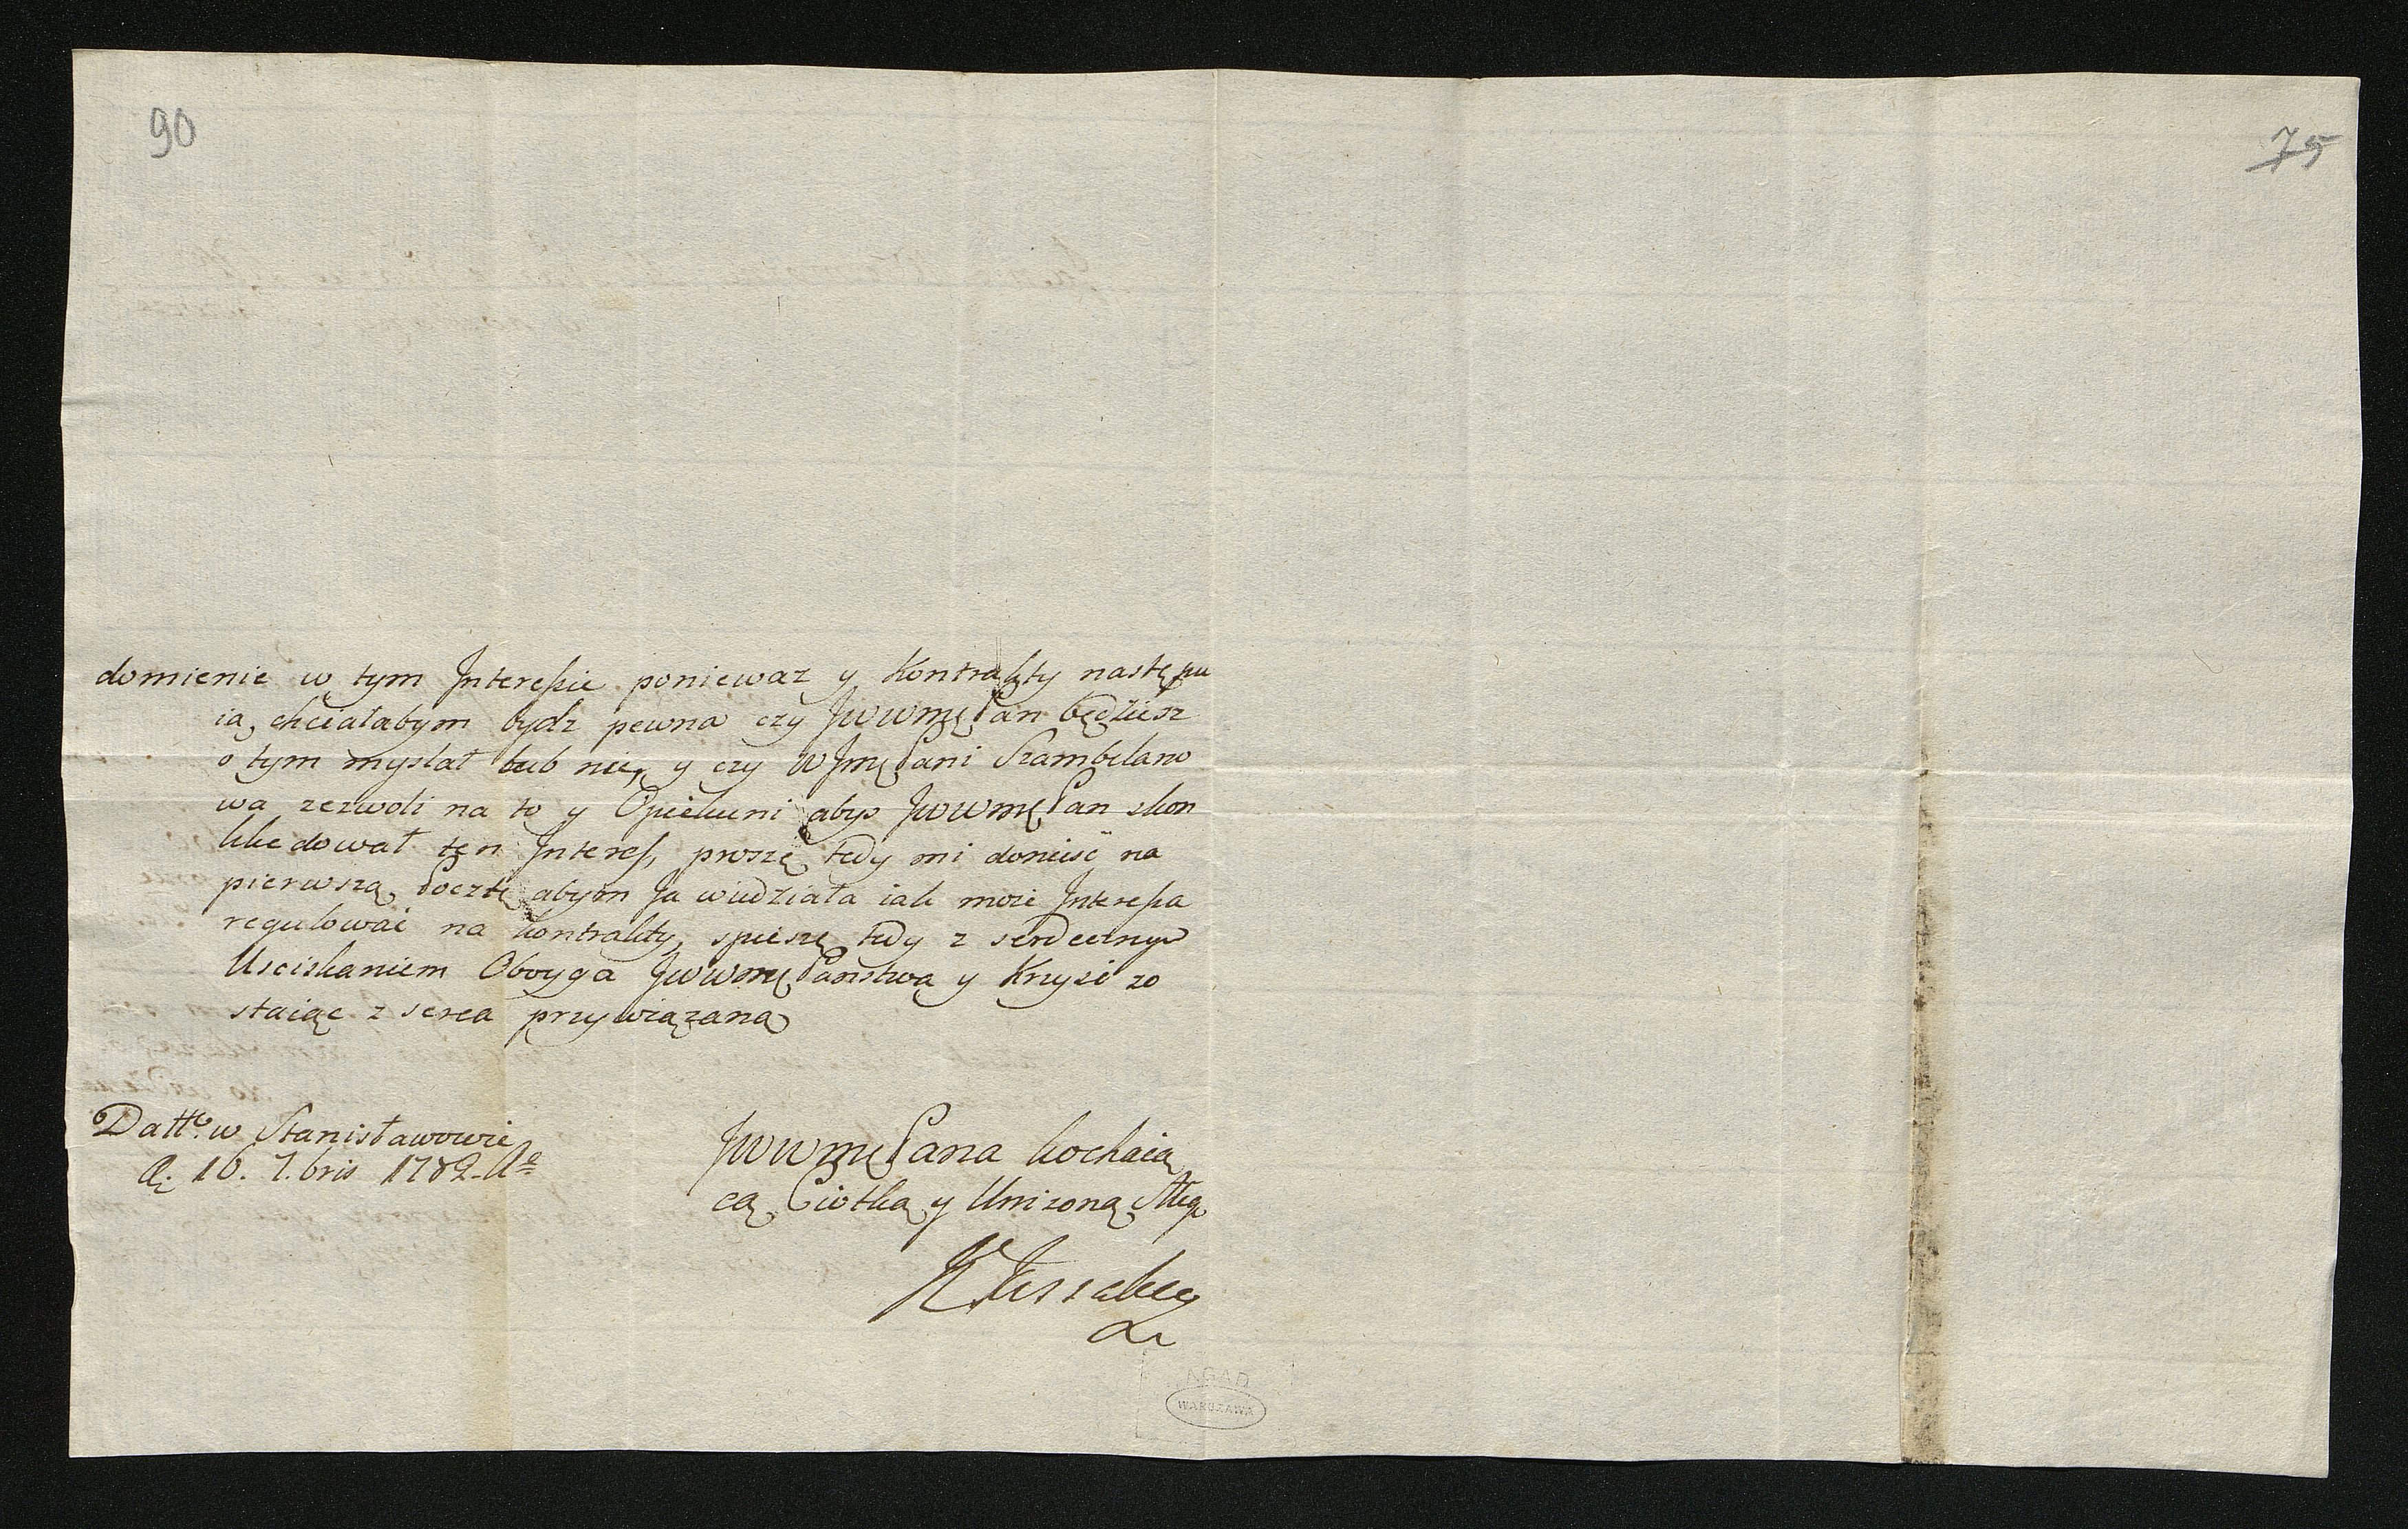 90
75
domienie w tym Interessie poniewaz y Kontrakty następu
ią, chciałabym bydz pewna czy JWWMę Pan będziesz
o tym myslał lub nie, y czy WJmę Pani Szambelano
wa zezwoli na to y Opiekuni abys JWWMę Pan skon
kludował ten Interes, proszę tedy mi doniesć na
pierwszą Pocztę abym Ja widziała iak moie Interessa
regulować na kontrakty, spieszę tedy z serdecznym
Usciskaniem Oboyga JWWMę Państwa y Krysi zo
staiąc z serca przywiązaną
Datt. w Stanisławowie
d. 16. 7.bris 1782. Ao
JWWMę Pana kochaią
cą Ciotką y Unizoną Sługą
AGAD
WARSZAWA